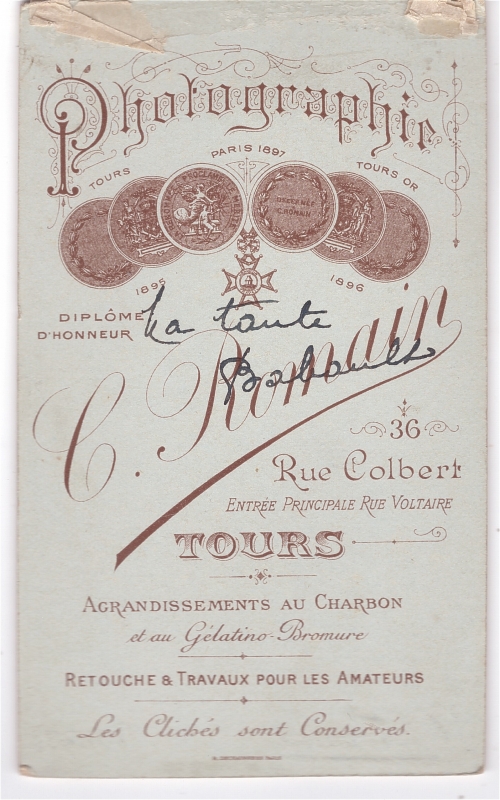 Photographie
PARIS 1897
TOURS
TOURS OR
DECERNÉE
C. ROMAIN
1895
1896
DIPLÔME
D'HONNEUR
La tante
C. Romain
36
Rue Colbert
ENTRÉE PRINCIPALE RUE VOLTAIRE
TOURS
AGRANDISSEMENTS AU CHARBON
et au Gélatino-Bromure
RETOUCHE & TRAVAUX POUR LES AMATEURS
Les Clichés sont Conservés.